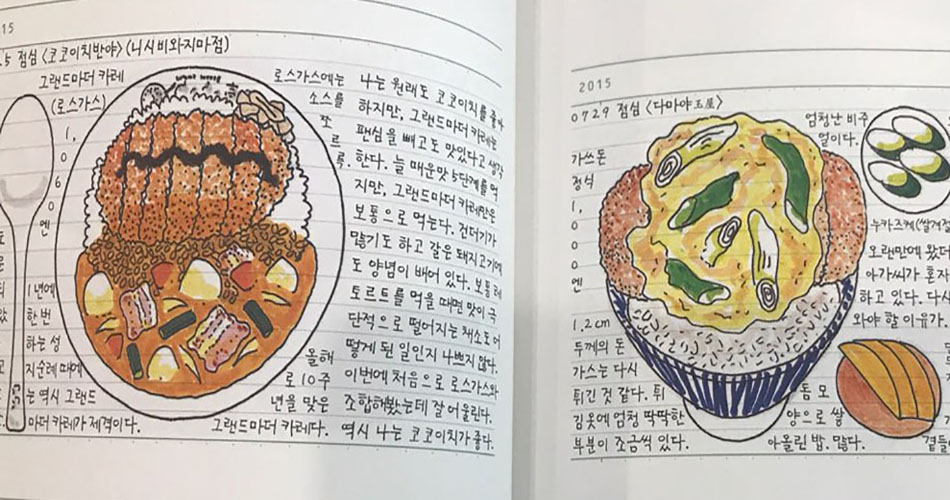 15
.5 점심 <코코이치반야> (니시비와지마점)
그랜드마더 카레
(로스가스)
1,
0
6
0
엔
1년에
한번
하는 성
지순례 때에
는 역시 그랜드
마더 카레가 제격이다.
로스가스에는
소스를
또
르
륵.
올해
로 10주
년을 맞은
그랜드마더 카레다.
나는 원래도 코코이치를
하지만, 그랜드마더 카레는
팬심을 빼고도 맛있다고 생각
한다. 늘 매운맛 5단계를 먹
지만, 그랜드마더 카레만은
보통으로 먹는다. 건더기가
많기도 하고 같은 돼지고기에
도 양념이 배어 있다. 보통 레
토르트를 먹을 때면 맛이 극
단적으로 떨어지는 채소도 어
떻게 된 일인지 나쁘지 않다.
이번에 처음으로 로스가스와
조합해봤는데 잘 어울린다.
역시 나는 코코이치가 좋다.
2015
0729 점심 <다마야玉屋>
가쓰돈
정식
1,
0
0
0
엔
1.2cm
두께의 돈
가스는 다시
튀긴 것 같다. 튀
김옷에 엄청 딱딱한
부분이 조금씩 있다.
돔 모
양으로 쌀
아올린 밥. 많다.
엄청난 비주
얼이다.
누카즈케(쌀겨절
오랜만에 왔더
아가씨가 혼자
하고 있다. 다시
와야 할 이유가.
곁들